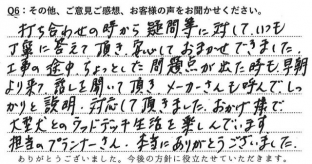 Q6：その他、ご意見ご感想、お客様の声をお聞かせください。
打ち合わせの時から疑問等に対して、いつも
丁寧に答えて頂き、安心しておまかせできました。
工事の途中、ちょっとした問題点が出た時も早朝
より来て、話しを聞いて頂き メーカーさんも呼んでしっ
かりと説明、対応して頂きました。おかげ様で
大型犬とのウッドデッキ生活を楽しんでいます。
担当のプランナーさん、本当にありがとうございました。
ありがとうございました。今後の方針に役立たせていただきます。